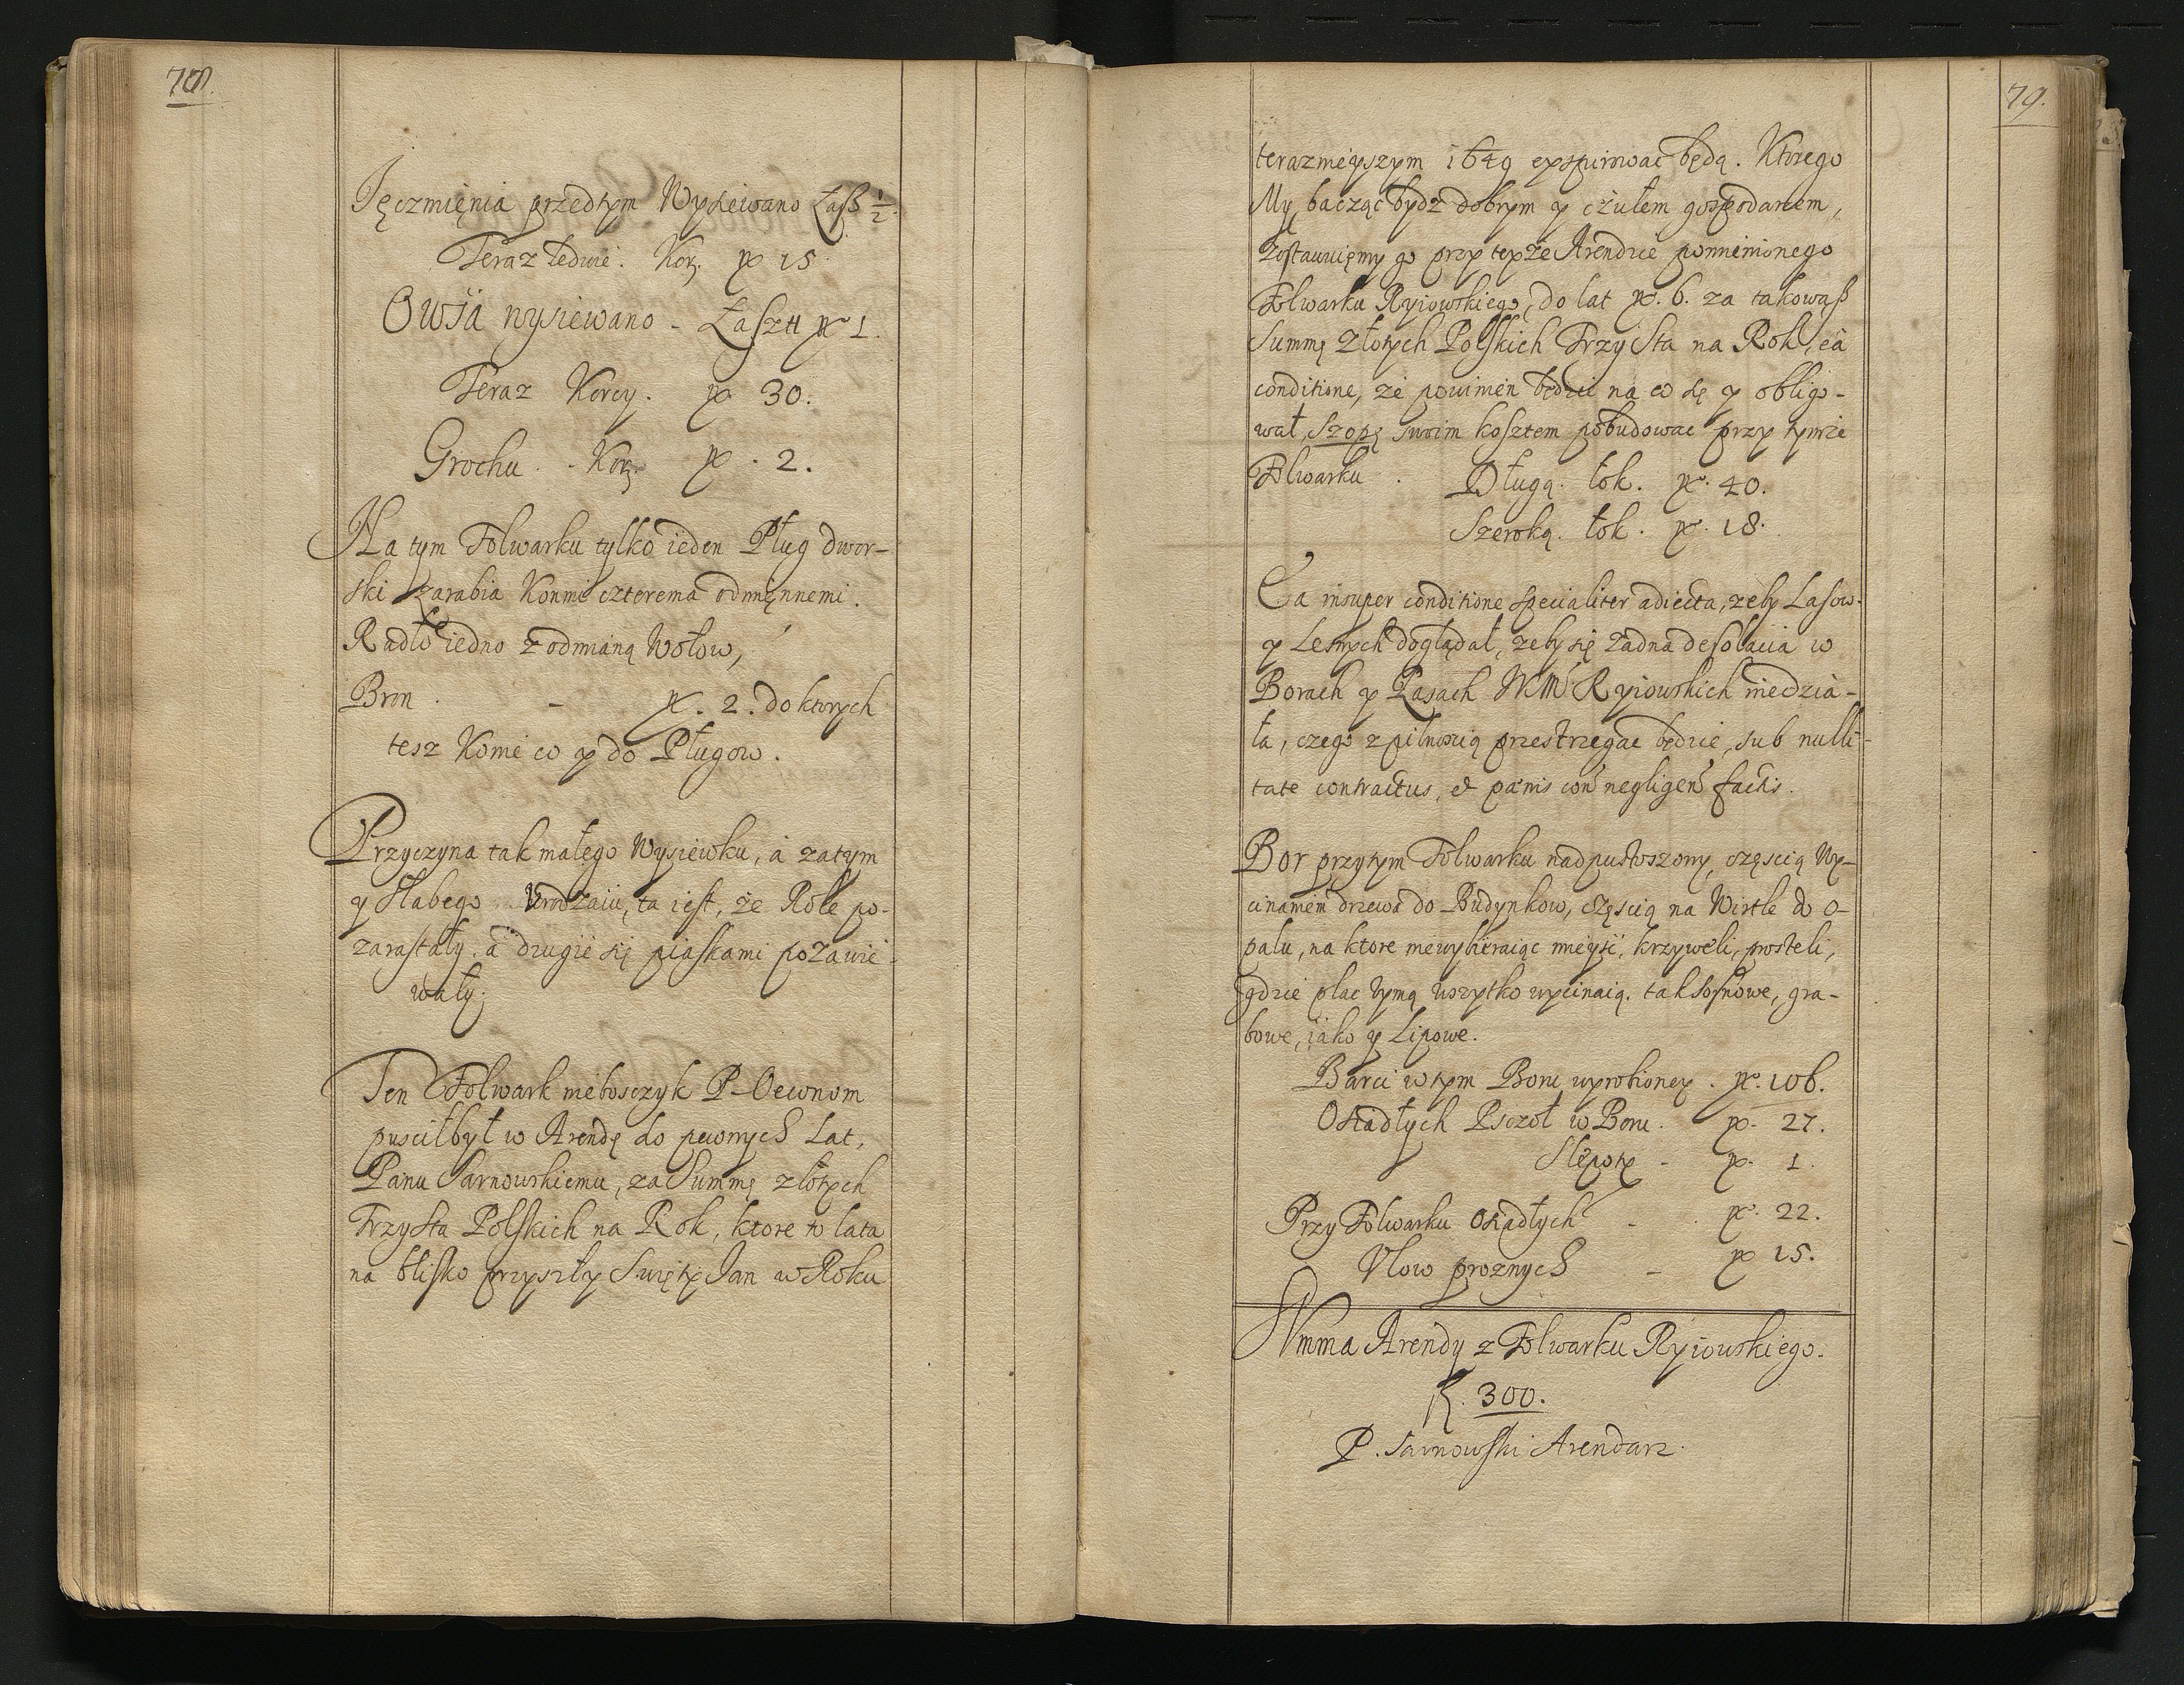 78.
Jęczmięnia przedtym Wysiewano Łaß ½
Teraz ledwie. Korz. № 15
Owsa wysiewano - Łasztt № 1.
Teraz Korcy. № 30.
Grochu. - Korz. № . 2.
Na tym Folwarku tylko ieden Pług dwor-
ski zarabia Konmi czterema odmięnnemi.
Radło iedno z odmianą Wołow,
Bron . - №. 2. do ktorych
tesz Konie co y do Pługow.
Przyczyna tak małego Wysiewku, á zatym
y słabego Vrodzaiu, ta iest, że Role po-
zarastały. á drugie się piaskami pozawie-
wały.
Ten Folwark nieboszczyk P. Oeconom
puscił był w Arendę do pewnych Lat,
Panu Sarnowskiemu, za Summę złotych
Trzysta Polskich na Rok, ktore to lata
na blisko przyszły Swięty Jan w Roku
79.
terazmeyszym 1649 exspirować będą. Ktorego
My, bacząc bydź dobrym y czułem gospodarzem,
Zostawuięmy go przy teyże Arendzie pomienionego
Folwarku Ryiowskiego, do lat №. 6. za takowąß
Summę Złotych Polskich Trzysta na Rok, eâ
conditione, że powinien będzie na co się y obligo-
wał, Szopę swoim kosztem pobudować przy tymże
Folwarku . Długą. łok. №. 40.
Szeroką. łok. №. 18.
Ea insuper conditione specialiter adiecta, żeby Lasow
y Lesnych doglądał, żeby się żadna desolacia w
Borach y Lasach Ryiowskich niedzia-
ła, czego z pilnoscią przestrzegac będzie, sub nulli-
tate contractus, et pœnis con negligen factis.
Bor przy tym Folwarku nadpustoszony, częscią Wy-
cinaniem drzewa do Budynkow, częscią na Wistle do O-
palu, na ktore niewybieraiąc mieysc, krzyweli, prosteli,
gdzie plac Wymą wszytko wycinaią. tak Sosnowe, gra-
bowe, iako y Lipowe.
Barci w tym Boru wyrobioney . №. 106.
Osiadłych Pszczoł w Boru. №. 27.
Slepoty - №. 1.
Przy Folwarku Osiadłych - . №. 22.
Vlow proznych - № 15.
Summa Arendy z Folwarku Ryiowskiego.
fl. 300.
P. Sarnowski Arendarz.